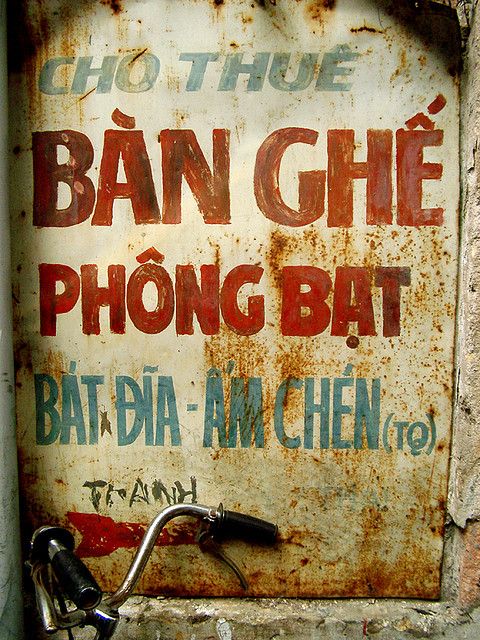 CHO THUÊ
BÀN GHẾ
PHÔNG BẠT
BÁT ĐĨA - ẤM CHÉN (TQ)
TRANH